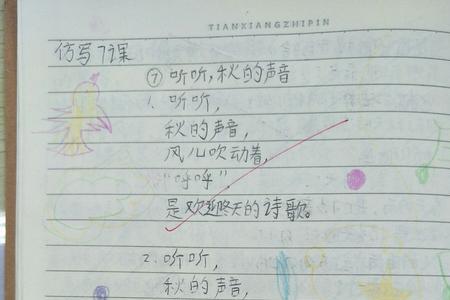 TIANXIANGZHIPIN
仿写7课
⑦ 听听,秋的声音
1. 听听,
秋的声音,
风儿吹动着,
"呼呼",
是欢迎冬天的诗歌。
2. 听听,
秋的声音,